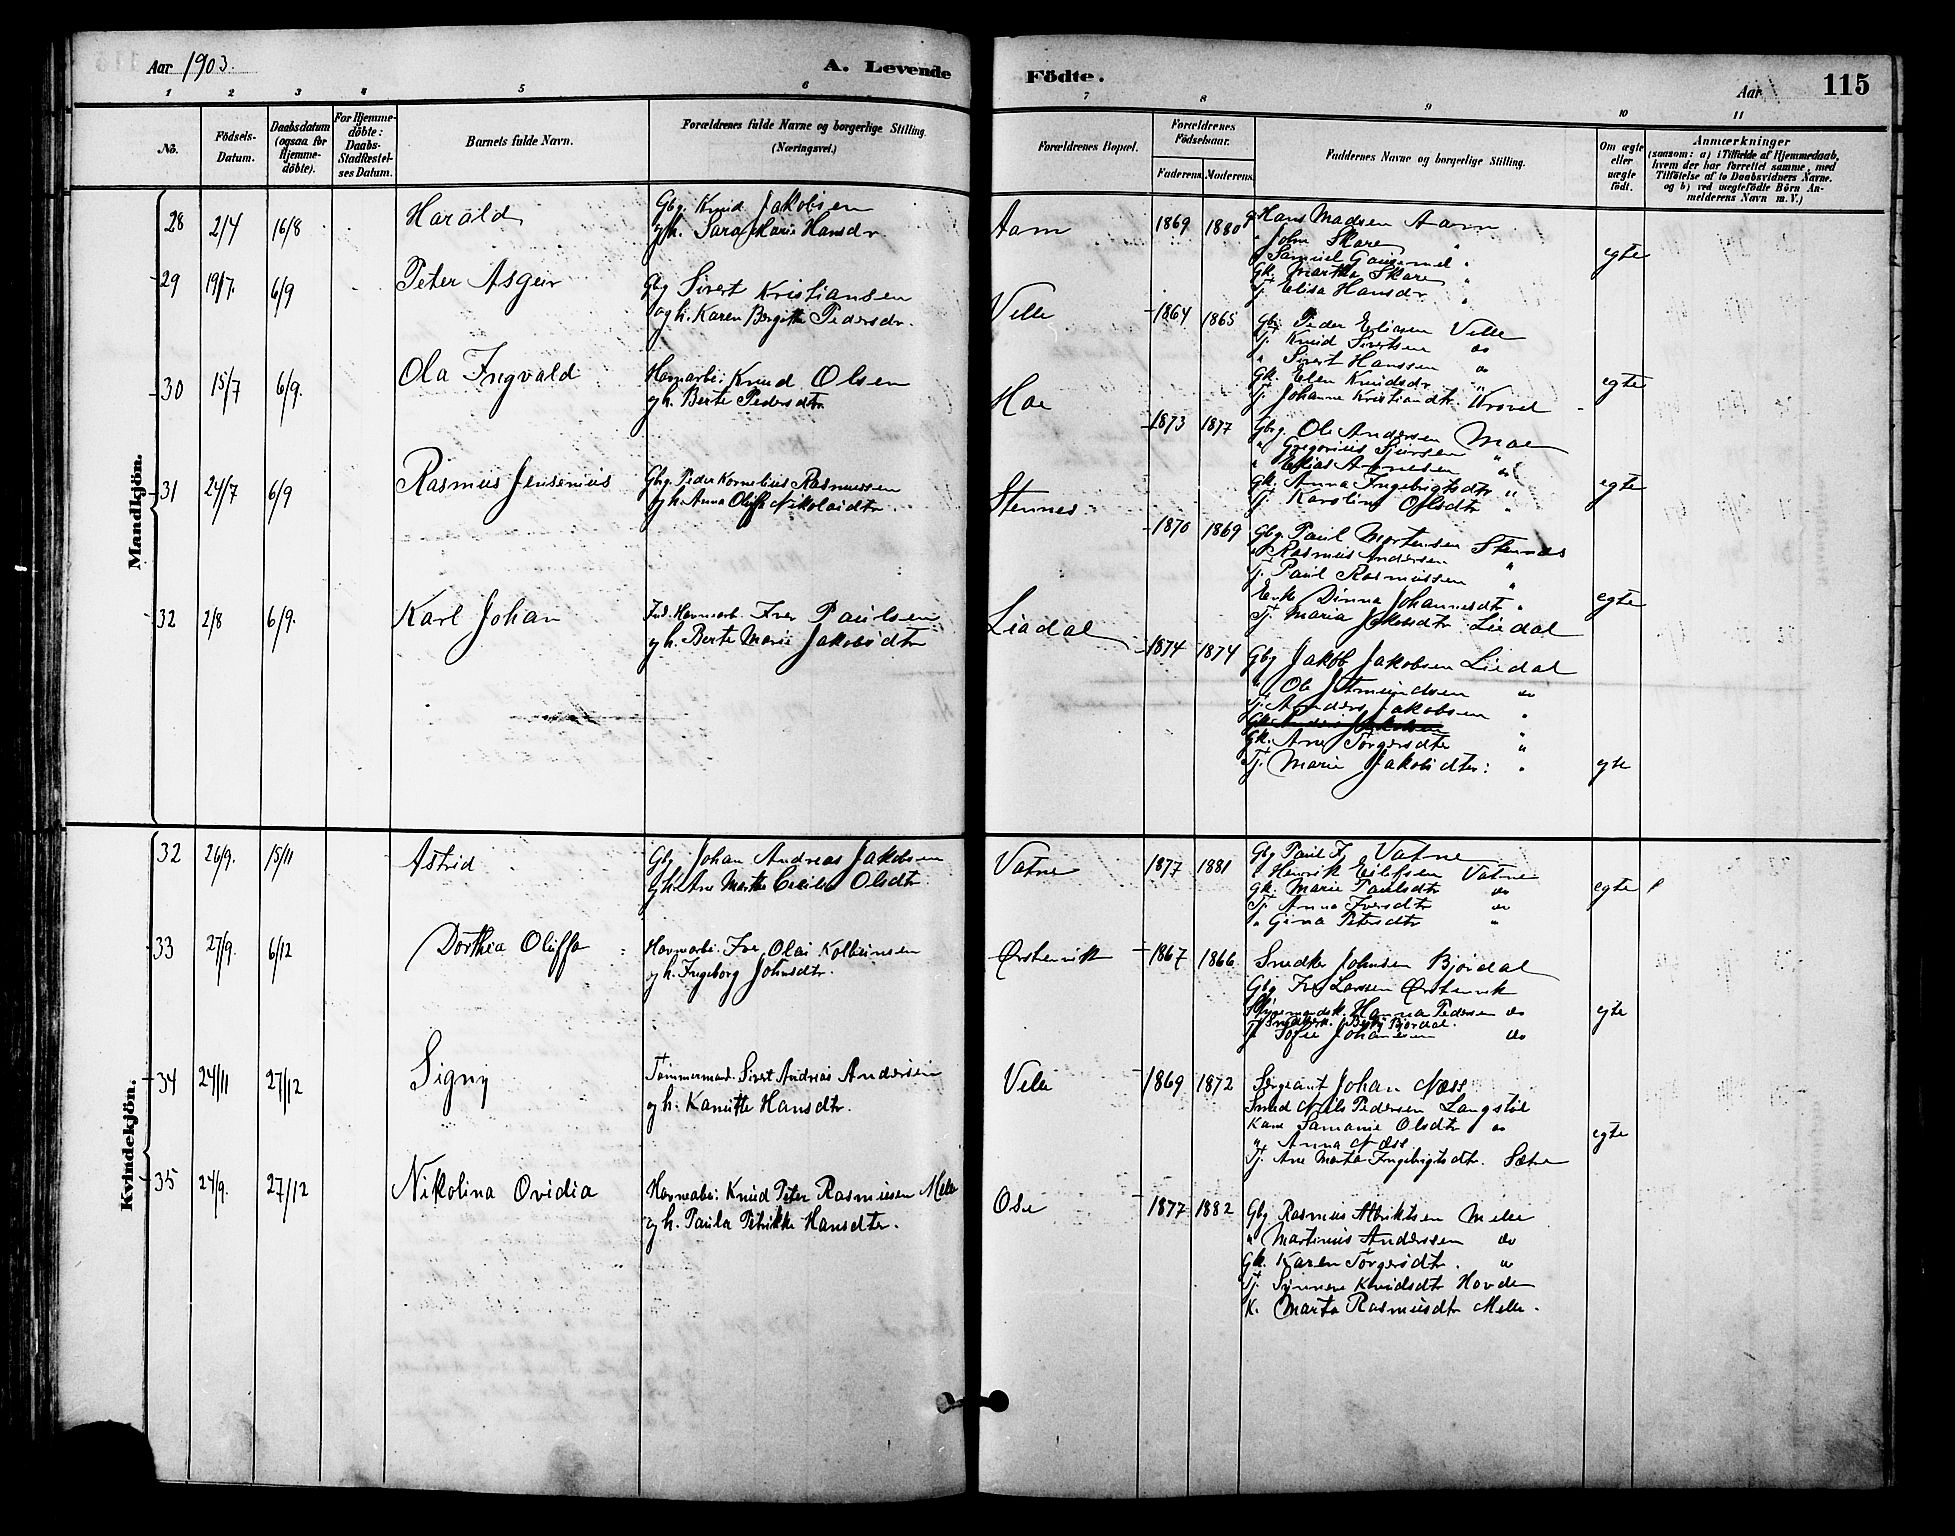 Aar 1903.
A. Levende
Födte.
Aar
115
1 2 3 4 5 6 7 8 9 10 11
No.
Födsels-
Datum.
Daabsdatum
(ogsaa for
Hjemme-
döbte).
For Hjemme-
döbte:
Daabs-
Stadfæstel-
ses Datum.
Barnets fulde Navn.
Forældrenes fulde Navne og borgerlige Stilling.
(Næringsvei.)
Forældrenes Bopæl.
Forældrenes
Födselsaar.
Faderens. Moderens.
Faddernes Navne og borgerlige Stilling.
Om ægte
eller
uægte
født.
Anmærkninger
(saasom: a) i Tilfælde af Hjemmedaab,
hvem der har forrettet samme, med
Tilföielse af to Daabsvidners Navne.
og b) ved uægtefödte Börn An-
melderens Navn m. V.)
Mandkjön.
28 2/4 16/8 Harald
Gbg. Knud Jakobsen
og h. Sara Marie Hansdr
Aam 1869 1880
Hans Madsen Aam
John Skare "
Samuel "
Gk. Martha Skare "
Tj. Elisa Hansdr "
egte
29 19/7. 6/9 Peter Asgeir
Gbg Sivert Kristiansen
og h. Karen Bergitte Pedersdr.
Velle 1864 1865
Gbg. Peder Eliasen Velle
Tj. Knud Sivertsen do
" Sivert Hanssen do
Gk. Elen Knudsdr "
Tj. Johanne Kristiandtr.
egte
30 15/7 6/9. Ola Ingvald
Havnearbei. Knud Olsen
og h. Berte Pedersdtr
Moe 1873 1877
Gbg. Ole Andersen Moe
" Gregorius Sjursen "
" Elias Arnesen do
Gk. Anna Ingebrigtsdtr "
Tj. Karoline Olsdtr "
egte
31 24/7 6/9 Rasmus Jensenius
Gbg. Peder Kornelius Rasmussen
og h. Anna Oluffa Nikolaidtr.
Stennes 1870 1869
Gbg. Paul Mortensen Stennes
" Rasmus Andersen "
Tj. Paul Rasmussen "
Enk Dinna Johannesdtr "
Tj. Maria Jakobsdtr Liadal
egte
32 2/8 6/9. Karl Johan
Ind. Havnearb. Iver Paulsen
og h. Berte Marie Jakobsdtr
Liadal 1874 1874
Gbg Jakob Jakobsen Liadal
" Ole Amundsen do
Tj. Anders Jakobsen "
Gk. Ane Torgersdtr "
Tj. Marie Jakobsdtr: "
egte
Kvindekjön.
32 26/9. 15/11 Astrid
Gbg Johan Andreas Jakobsen
og h. Ane Marthe Cecilie Olsdtr
Vatne 1877 1881
Gbg Paul I. Vatne
" Henrik Eilefsen Vatne
Gk. Marie Paulsdtr do
Tj. Anna Iversdtr do
" Gina Petersdtr "
egte
33 27/9. 6/12 Dorthea Oluffa
Havnearbei. Iver Olai Kolbeinsen
og h. Ingeborg Johnsdtr.
Ørstenvik 1867 1866
Snedker Johnsen Bjørdal
Gbg Iver Larsen Ørstenvik
Hanna Pedersen do
Snedkerk. Bjørdal.
Tj Sofie Johansen do
egte
34 24/11 27/12 Signy
Tømmermand. Sivert Andreas Andersen
og h. Kanutte Hansdtr.
Velle 1869 1872
Sergeant Johan Næss
Smed Nils Pedersen Langstøl
Kone Samanie Olsdtr do
" Anna Næss.
Tj. Ane Marta Ingebrigtsdtr. Sætre
egte
35 24/9. 27/12 Nikolina Ovidia
Havnearbei. Knud Peter Rasmussen Melle
og h. Paula Petrikke Hansdtr.
Ose 1877 1882
Gbg Rasmus Albriktsen Melle
" Martinus Anderssen do
Gk. Karen Torgersdtr. "
Tj. Synneve Knudsdtr Hovde
K. Marta Rasmusdtr Melle.